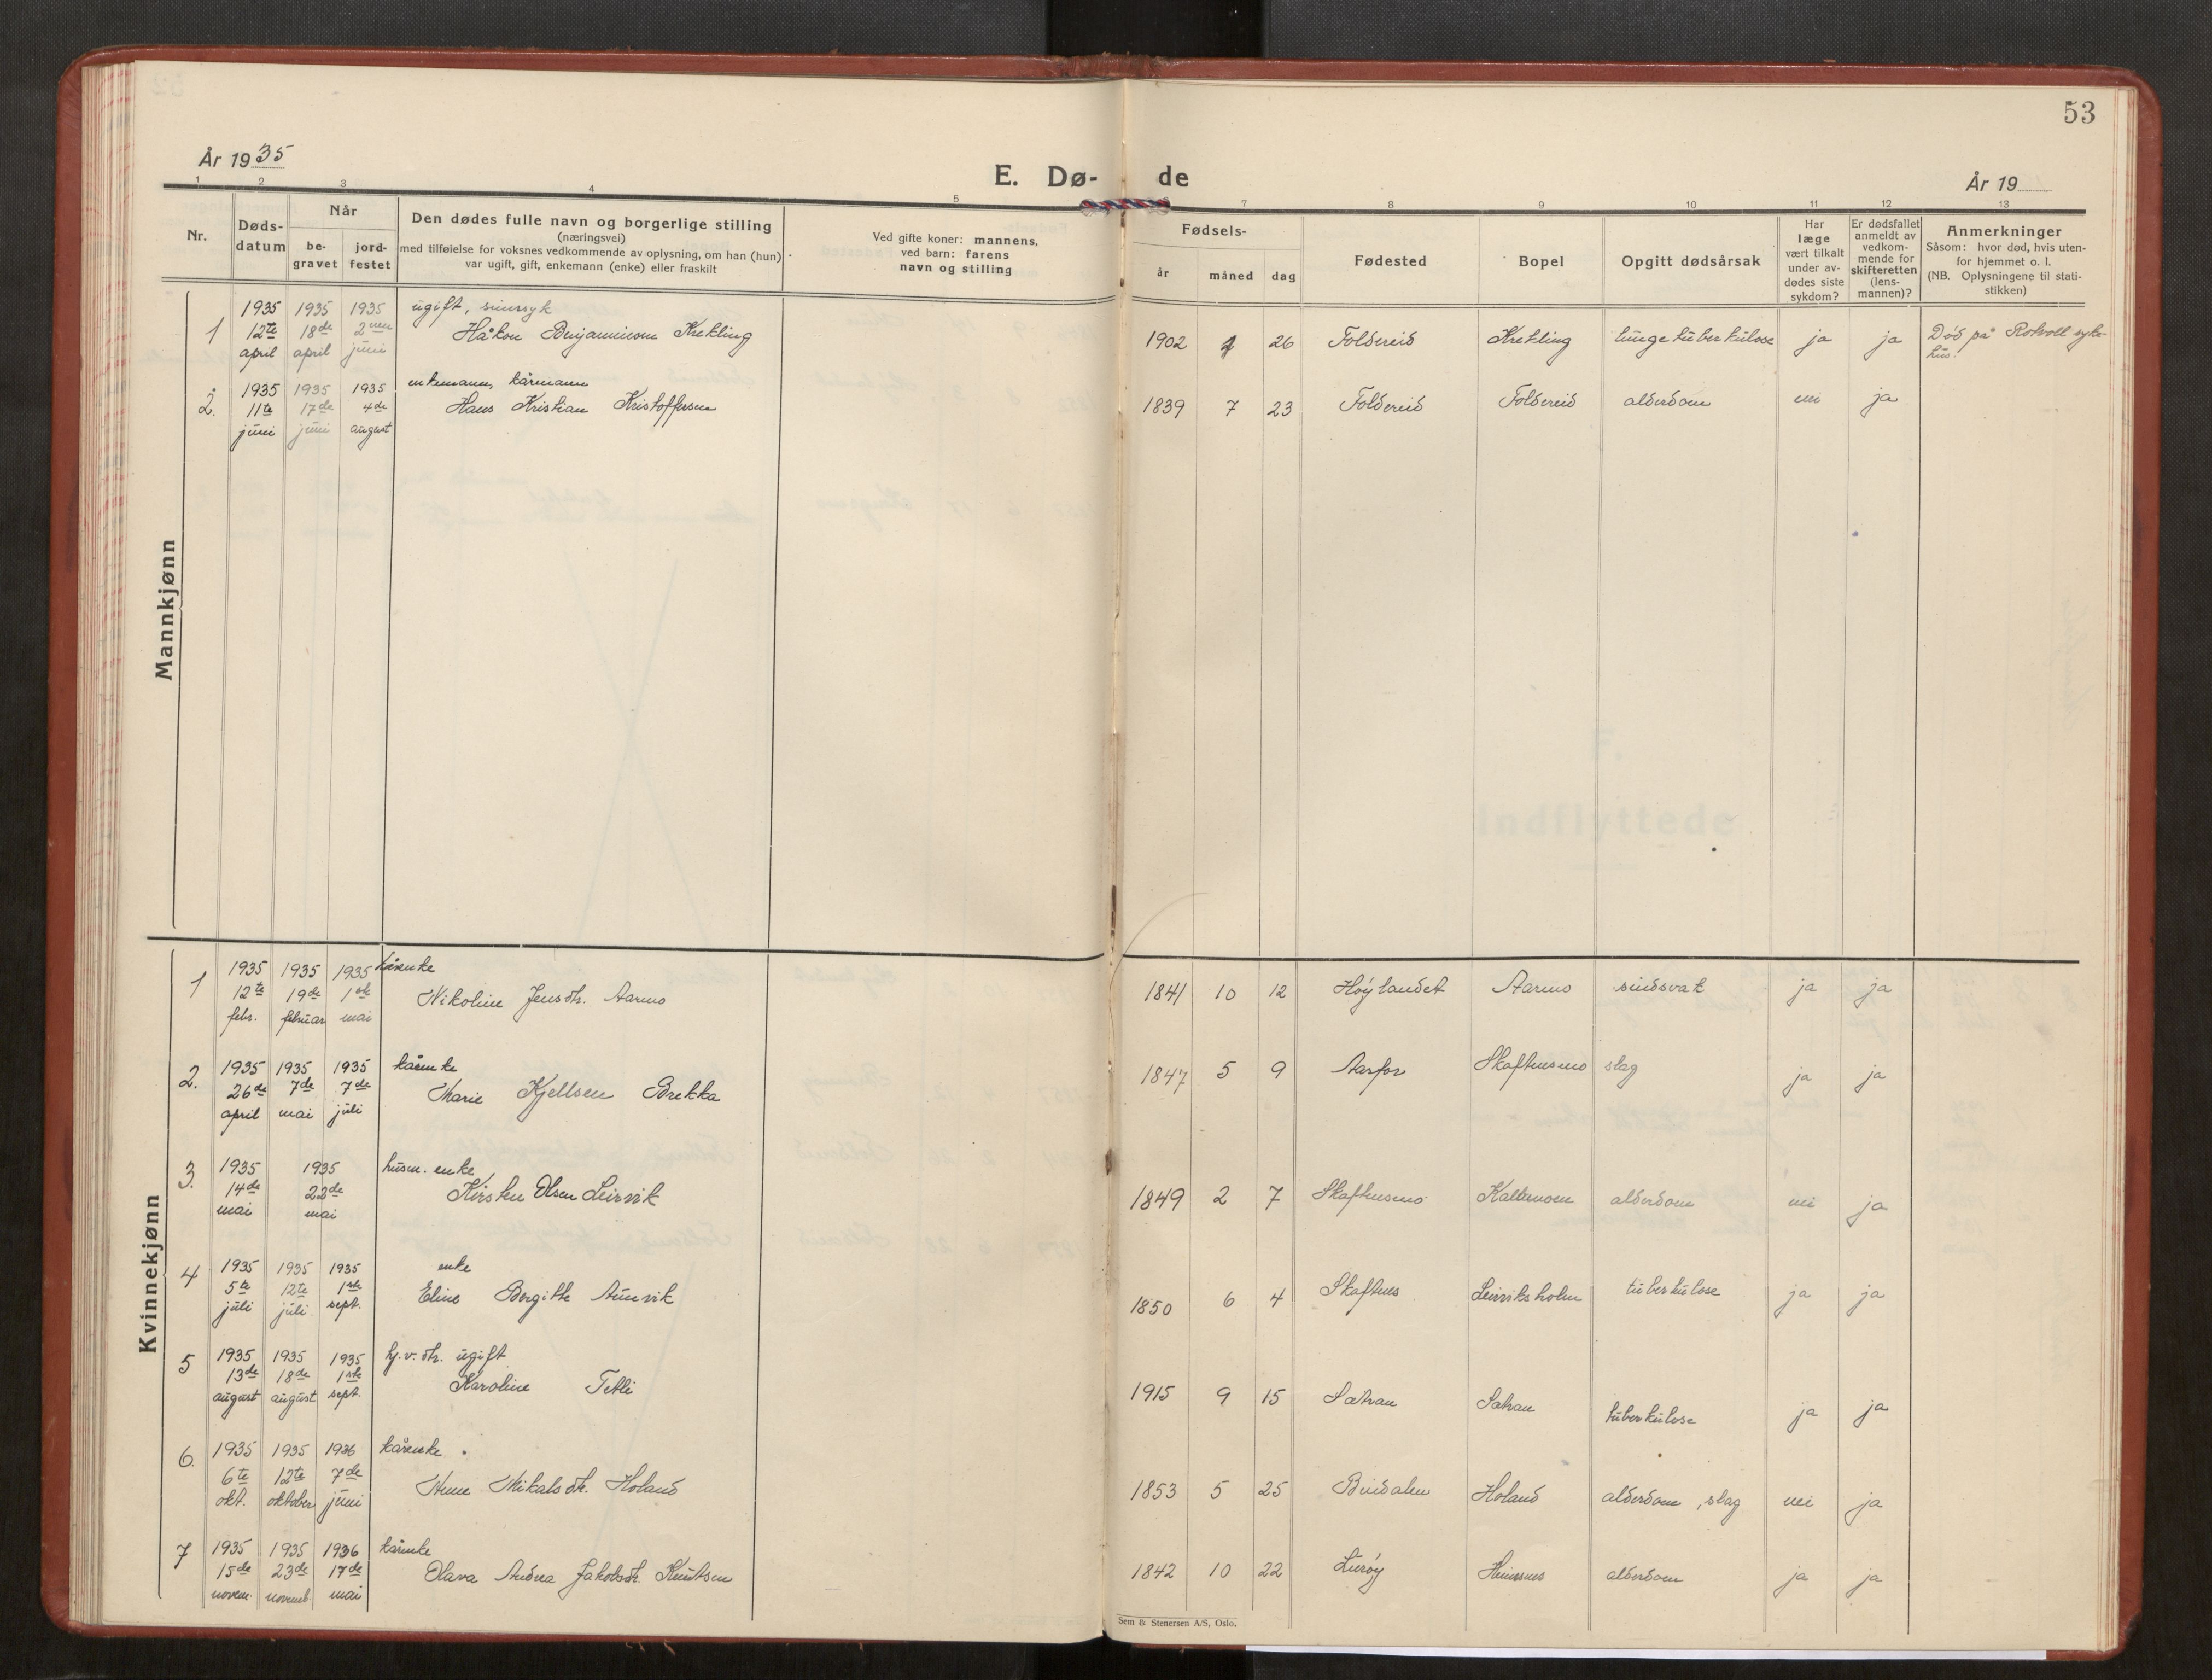 53
År 1935
E. Dø-
de
År 19
1 2 3 4 5 7 8 9 10 11 12 13
Nr.
Døds-
datum
Når
be-
gravet
jord-
festet
Den dødes fulle navn og borgerlige stilling
(næringsvei)
med tilføielse for voksnes vedkommende av oplysning, om han (hun)
var ugift, gift, enkemann (enke) eller fraskilt
Ved gifte koner: mannens,
ved barn: farens
navn og stilling
Fødsels-
år måned dag
Fødested
Bopel
Opgitt dødsårsak
Har
læge
vært tilkalt
under av-
dødes siste
sykdom?
Er dødsfallet
anmeldt av
vedkom-
mende for
skifteretten
(lens-
mannen)?
Anmerkninger
Såsom: hvor død, hvis uten-
for hjemmet o. l.
(NB. Oplysningene til stati-
stikken)
Mannkjønn
1935 1935 1935 ugift, sinnsyk
1 12te 18de 2nen Håkon Benjaminsen Krekling 1902 26 Foldereid Krekling lungetuberkulose ja ja Død på Rotvoll syke-
april april juni hus.
1935 1935 1935 enkemann, kårmann
2. 11te 17de 4de Hans Kristian Kristoffersen 1839 7 23 Foldereid Foldereid alderdom nei ja
juni juni august
Kvinnekjønn
1935 1935 1935 kårenke
1 12te 19de 1ste Nikoline Jensdtr. Aarmo 1841 10 12 Høylandet Aarmo sindsvak ja ja
febr. februar mai
1935 1935 1935 kårenke
2. 26de 7de 7de Marie Kjellsen Brekka 1847 5 9 Aarfor Skaftnesmo slag ja ja
april mai juli
1935 1935 husm. enke
3. 14de 22de Kirsten Olsen Leirvik 1849 2 7 Skaftnesmo Kaltmoen alderdom nei ja
mai mai
1935 1935 1935 enke
4 5te 12te 1ste Eline Bergitte Aunvik 1850 6 4 Skaftnes Leirviksholm tuberkulose ja ja
juli juli sept.
1935 1935 1935 hj.v. dtr. ugift
5 13de 18de 1ste Karoline Tetli 1915 9 15 Sætran Sætran tuberkulose ja ja
august august sept.
1935 1935 1936 kårenke
6. 6te 12te 7de Anne Mikalsdtr. Holand 1853 5 25 Bindalen Holand alderdom, slag nei ja
okt. oktober juni
1935 1935 1936 kårenke
7 15de 23de 17de Olava Andrea Jakobsdtr. Knutsen 1842 10 22 Lurøy alderdom ja ja
novem. novemb. mai
Sem & Stenersen A/S, Oslo.
Indflyttede